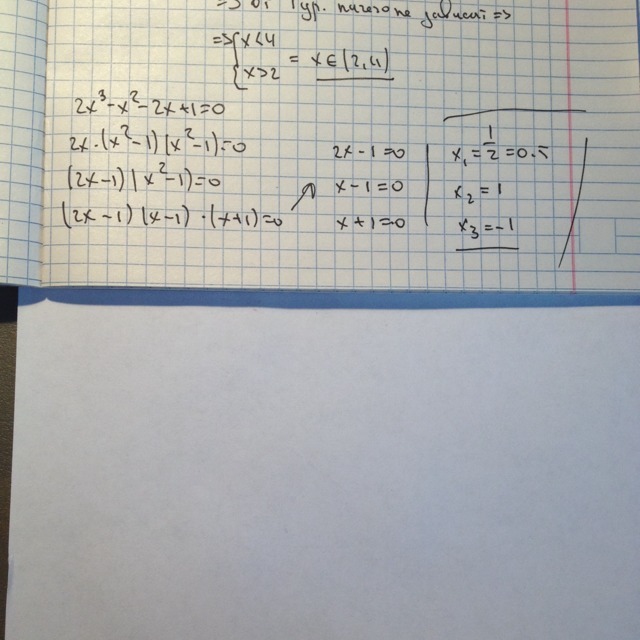 =>
=> { x<4
x>2 = x∈(2,4)
2x³-x²-2x+1=0
2x·(x²-1)(x²-1)=0
(2x-1)(x²-1)=0
(2x-1)(x-1)·(x+1)=0
2x-1=0
x-1=0
x+1=0
x₁=1/2=0.5
x₂=1
x₃=-1